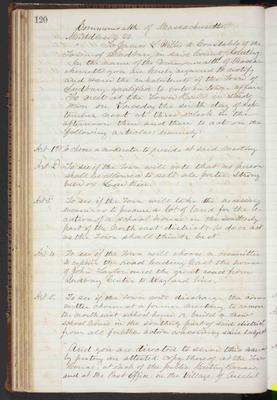 120
Commonwealth of Massachusetts
Middlesex SS.
To James a Constable of the
Town of Sudbury in said County Greeting
In the name of the Commonwealth of Massa-
chusetts you are hereby required to notify
and warn the inhabitants of the Town of
Sudbury qualified to vote in Town affairs
to meet at the Town Hall in said
Town on Tuesday the sixth day of Sep-
tember next at three oclock in the
afternoon then and there to act on the
following articles namely:
Art 1st To choose a moderator to preside at said meeting
Art 2 To see if the Town will vote that no person
shall be allowed to sell ale porter strong
beer or Lager beer.
Art 3 To see if the Town will take the necessary
measures to procure a lot of land for the lo-
cation of a school house in the southerly
part of the North east district or do or act
as the Town shall think best
Art 4 To see if the Town will choose a committee
to repair the road leading past the house
of John Taylor and the great road from
Sudbury Centre to Wayland line.
Art 5 To see if the Town will discharge the com-
mittee chosen at a former meeting to remove
the north east school house or build a new
school house in the southerly part of said district
from all further action concerning said subject
And you are directed to serve this warrant
by posting an attested copy thereof at the Town
House, at each of the public Meeting Houses
and at the Post Office in the Village of